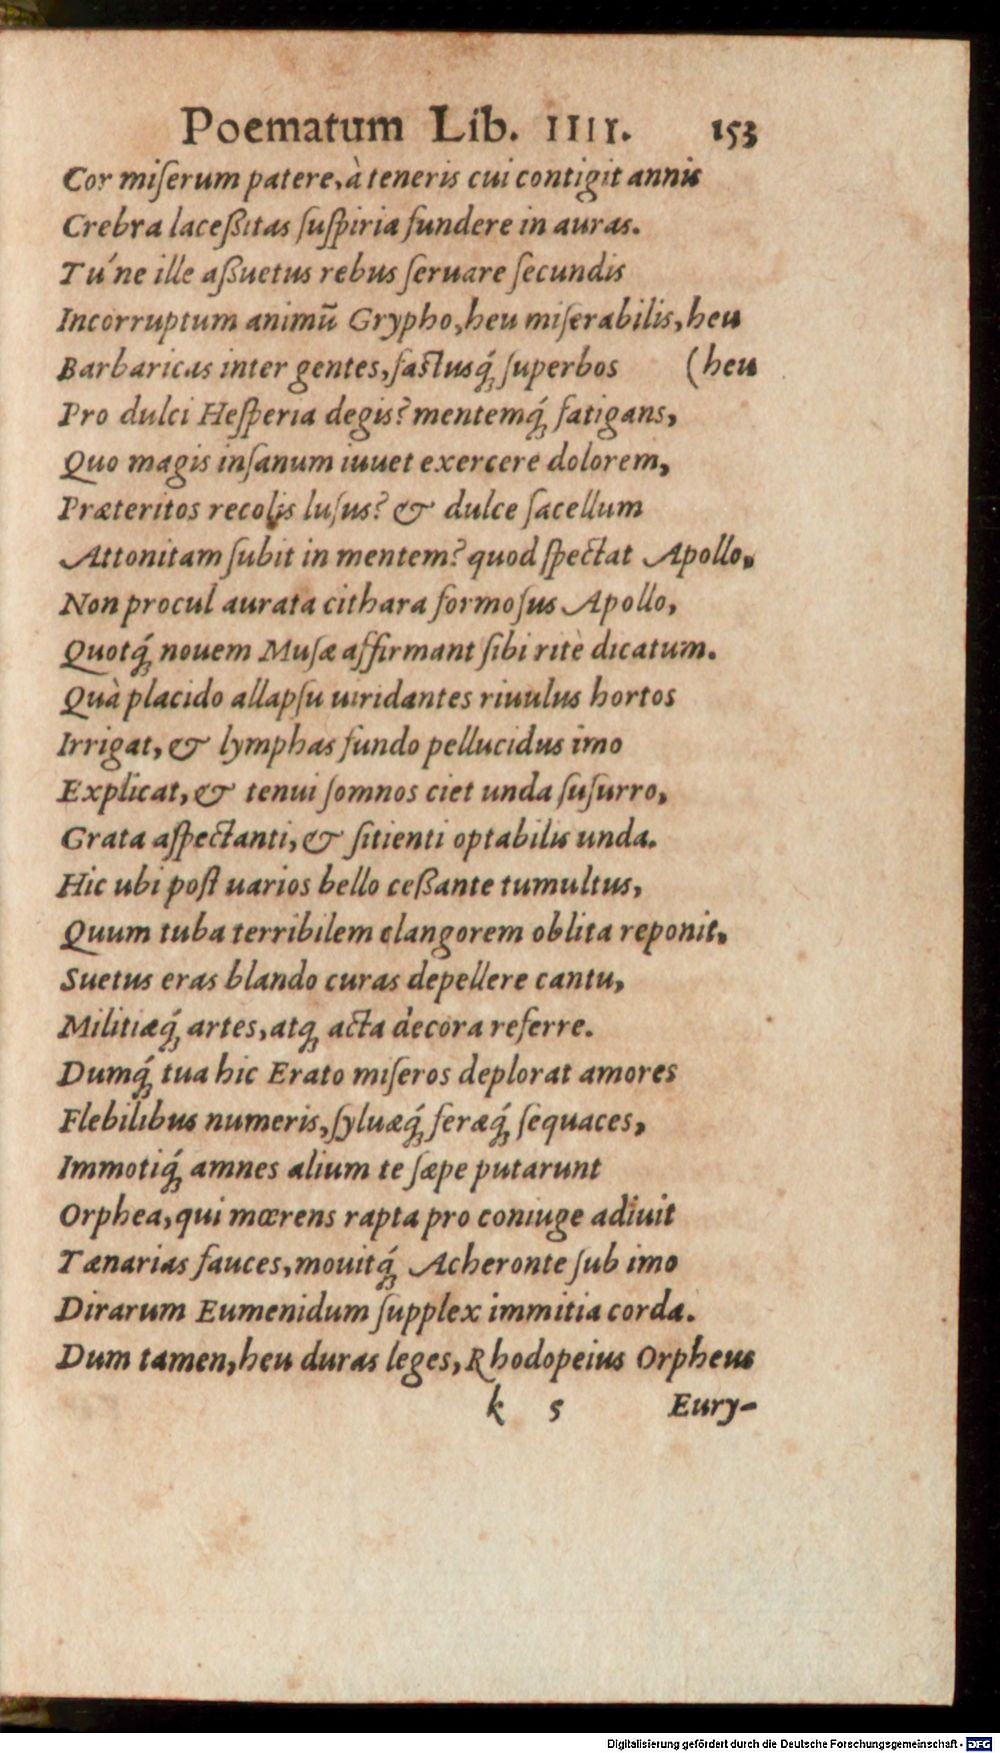 Poematum Lib. IIII. 153
Cor miſerum patere, à teneris cui contigit annis
Crebra laceßitas ſuſpiria fundere in auras.
Tu'ne ille aßuetus rebus ſeruare ſecundis
Incorruptum animū Grypho, heu miſerabilis, heu
Barbaricas inter gentes, faſtusq́ꝫ ſuperbos (heu
Pro dulci Heſperia degis? mentemq́ꝫ fatigans,
Quo magis inſanum iuuet exercere dolorem,
Præteritos recolis luſus? & dulce ſacellum
Attonitam ſubit in mentem? quod ſpectat Apollo,
Non procul aurata cithara formoſus Apollo,
Quotq́ꝫ nouem Muſæ affirmant ſibi ritè dicatum.
Quà placido allapſu uiridantes riuulus hortos
Irrigat, & lymphas fundo pellucidus imo
Explicat, & tenui ſomnos ciet unda ſuſurro,
Grata aſpectanti, & ſitienti optabilis unda.
Hic ubi poſt uarios bello ceßante tumultus,
Quum tuba terribilem clangorem oblita reponit,
Suetus eras blando curas depellere cantu,
Militiæq́ꝫ artes, atqꝫ acta decora referre.
Dumq́ꝫ tua hic Erato miſeros deplorat amores
Flebilibus numeris, ſyluæq́ꝫ feræq́ꝫ ſequaces,
Immotiq́ꝫ amnes alium te ſæpe putarunt
Orphea, qui mœrens rapta pro coniuge adiuit
Tænarias fauces, mouitq́ꝫ Acheronte ſub imo
Dirarum Eumenidum ſupplex immitia corda.
Dum tamen, heu duras leges, Rhodopeius Orpheus
k 5 Eury-
Digitalisierung gefördert durch die Deutsche Forschungsgemeinschaft - DFG